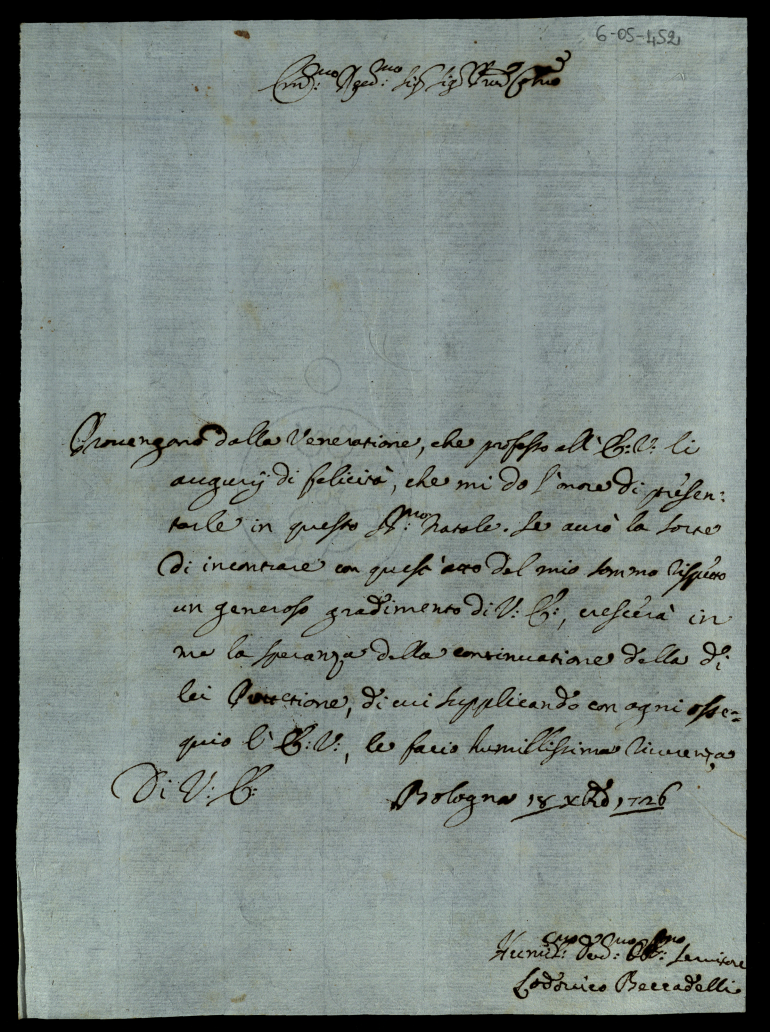 6-05-452
Em.mo R.mo Sig.r Sig.r P.ron Col.mo
Prouengono dalla Veneratione, che professo all' E: V: li
augurij di felicità, che mi do l'onore di presen:
tarle in questo SS:mo Natale. Se aurò la sorte
di incontrare con quest'atto del mio sommo rispetto
un generoso gradimento di V: E:, crescerà in
me la speranza della continuatione della di
lei Protettione, di cui supplicando con ogni osse=
quio l' E: V:, le facio humillissima riuerenza
Di V: E:
Bologna 18 Xbre 1726
Humil:mo Deu:mo Obl:mo Seruitore
Lodouico Beccadelli